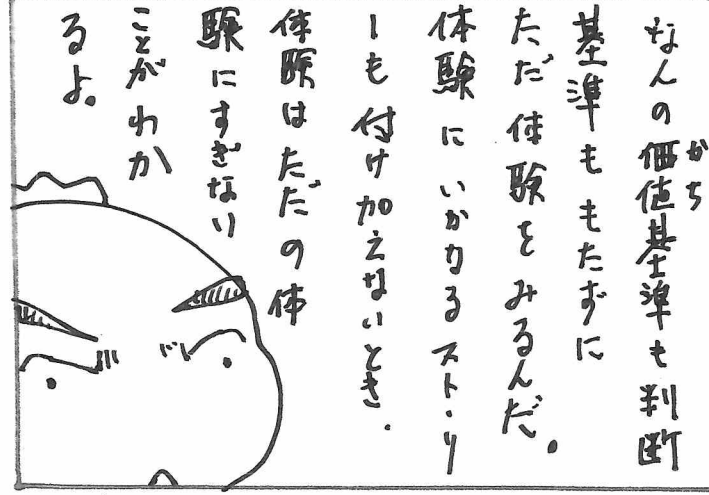 なんの価値基準も判断
基準ももたずに
ただ体験をみるんだ。
体験にいかなるストーリ
ーも付け加えないとき、
体験はただの体
験にすぎない
ことがわか
るよ。
かち